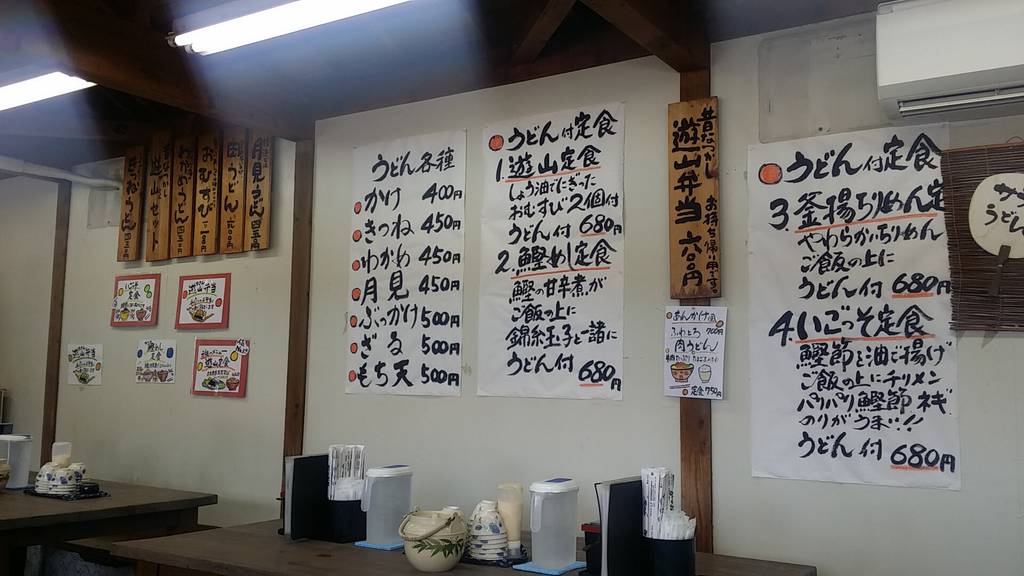 月見うどん
肉うどん
おむすび
わかめうどん
遊山セット
きつねうどん
うどん各種
かけ 400円
きつね 450円
わかめ 450円
月見 450円
ぶっかけ 500円
ざる 500円
もち天 500円
うどん付定食
1.遊山定食
しょう油でにぎった
おむすび2個付
うどん付 680円
2.鰹めし定食
鰹の甘辛煮が
ご飯の上に
錦糸玉子と一諸に
うどん付 680円
昔なつかし
遊山弁当 六八〇円
あんかけ風
ふわとろ 700円
肉うどん
定食750円
うどん付定食
3.釜揚ちりめん定
やわらかいちりめん
ご飯の上に
うどん付 680円
4.いごっそ定食
鰹節と油で揚げ
ご飯の上にチリメン
パリパリ鰹節 ネギ
のりがうまい!!
うどん付 680円
うどん